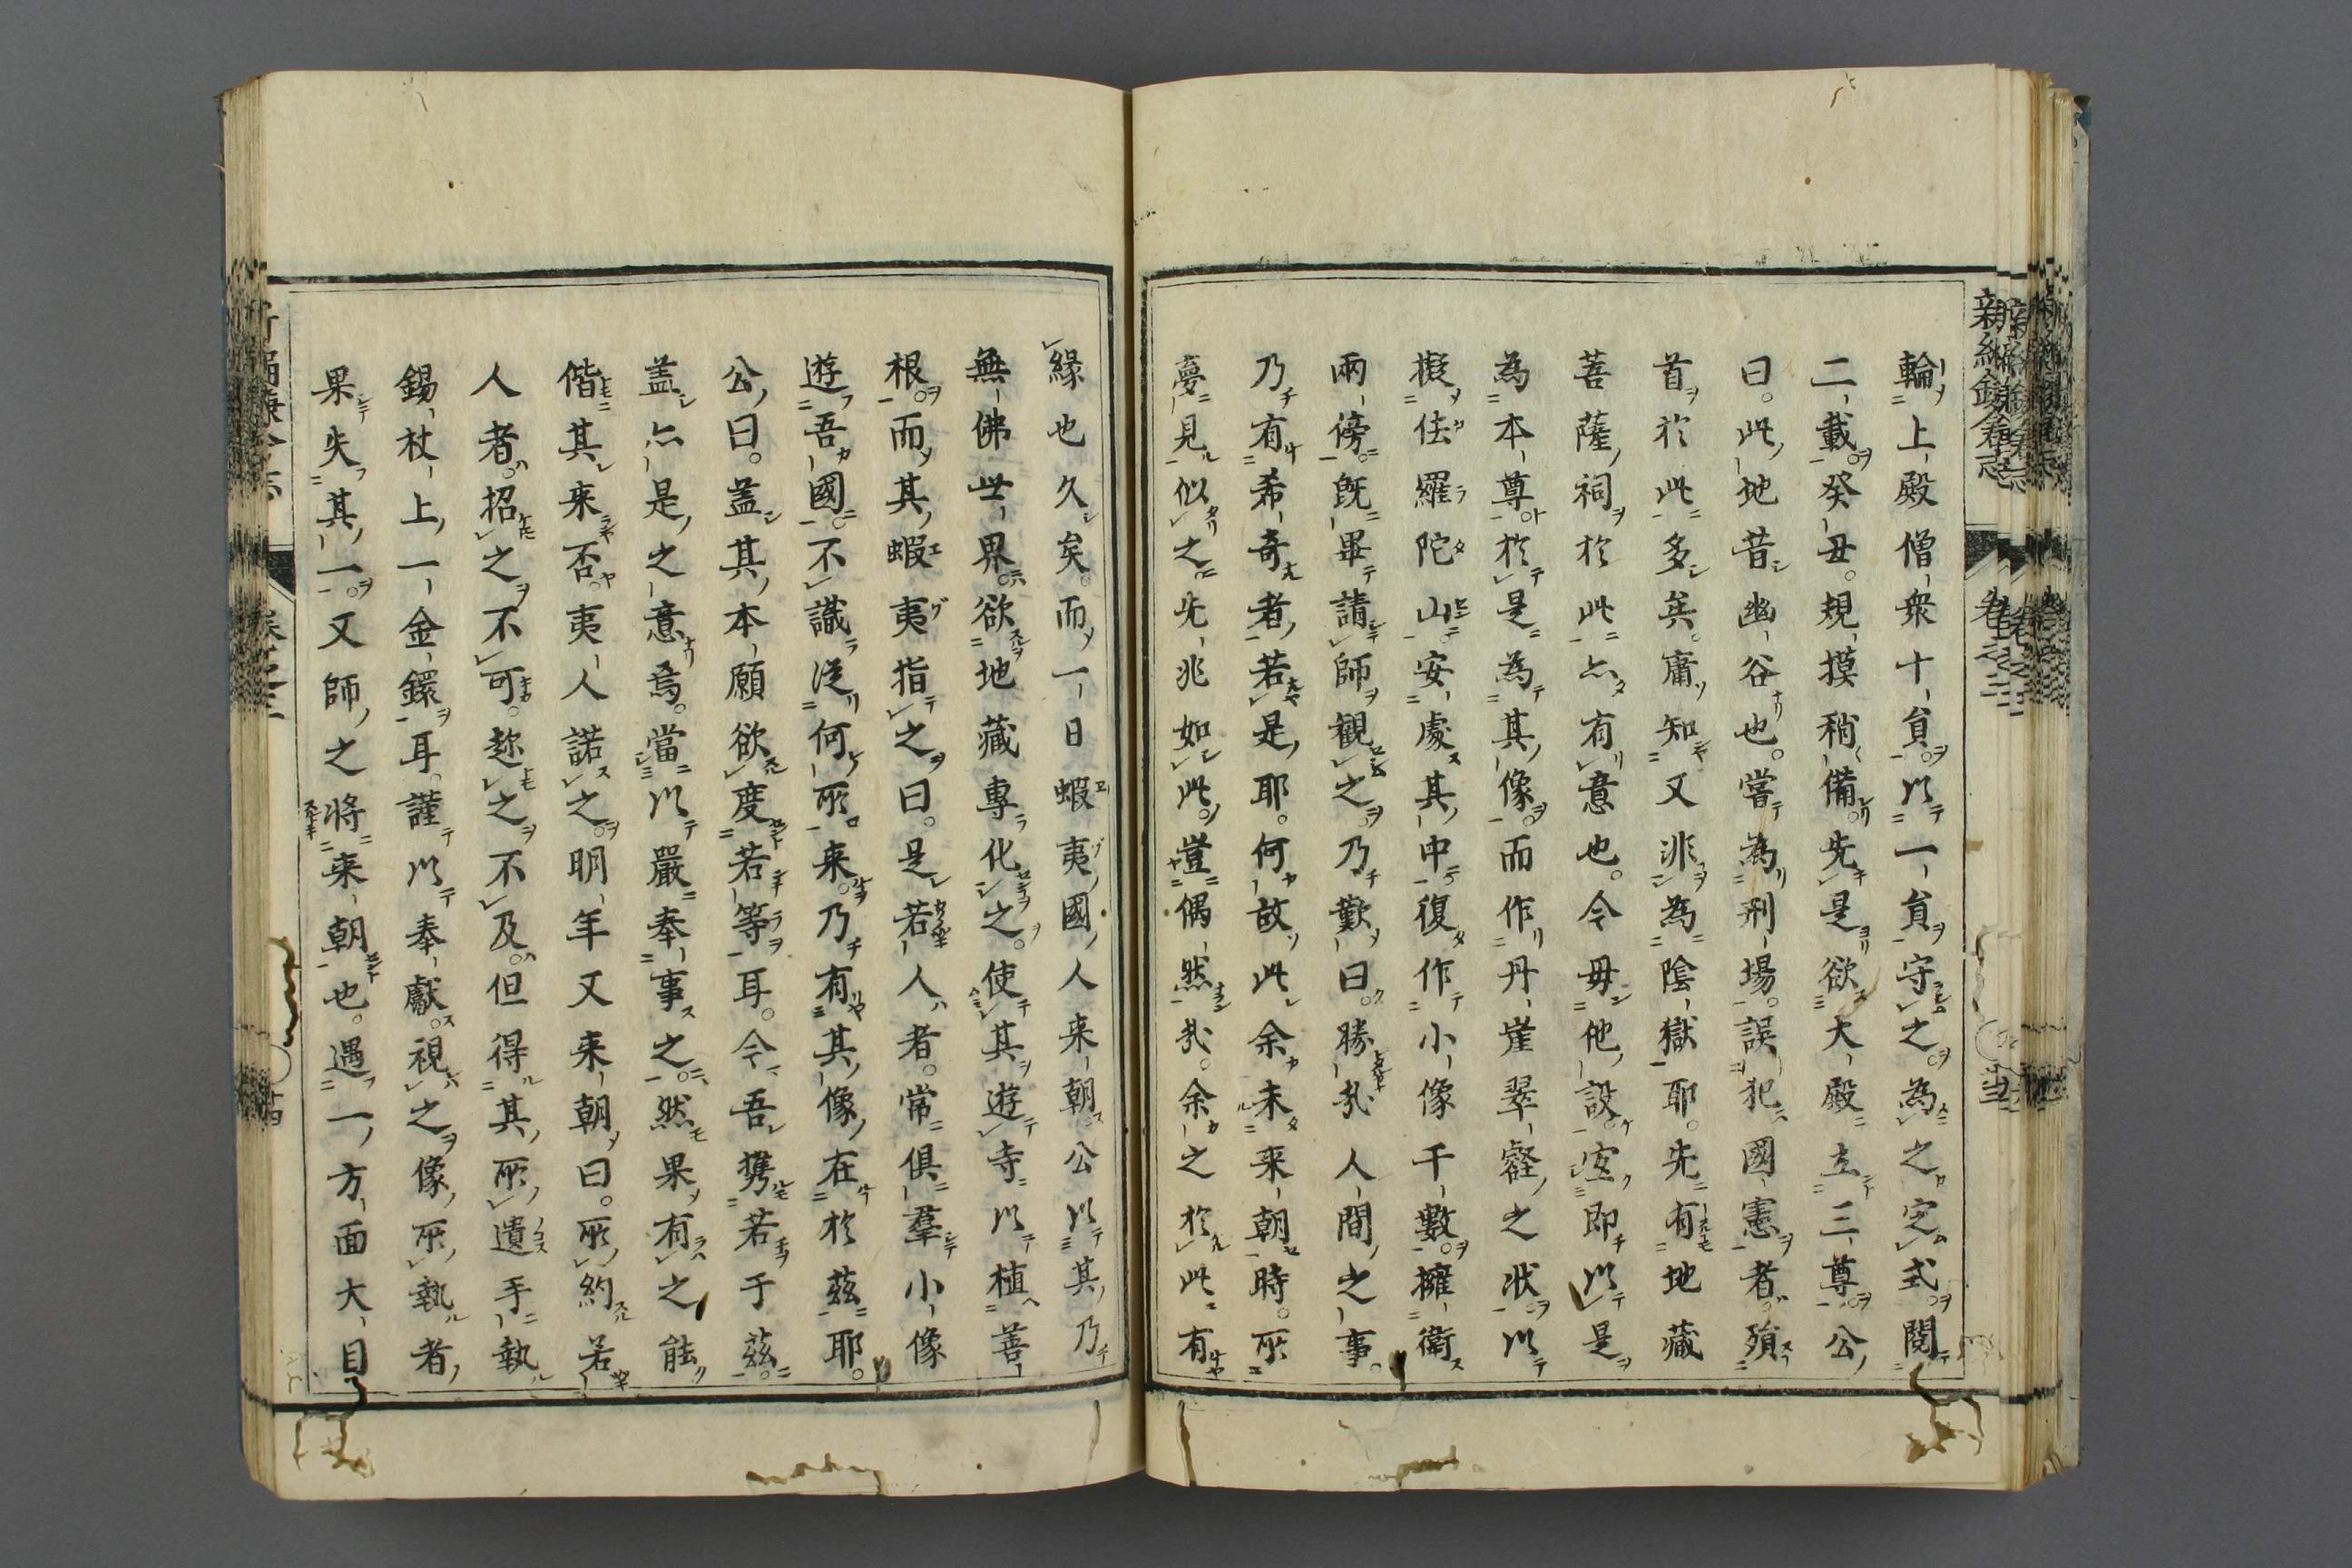 輪上殿僧衆十負以一負守之為之定式閲
二載癸丑規摸稍備先是欲大殿立三尊公
曰此地昔幽谷也嘗為刑場誤犯國憲者殞
首於此多矣庸知又非為陰獄耶先有地藏
菩薩祠於此亦有意也今毋他設㝎即以是
為本尊於是為其像而作丹崖翠壑之状以
擬佉羅陀山安處其中復作小像千數擁衛
兩傍既畢請師観之乃歎曰勝㢤人間之事
乃有希奇者若是耶何故此余未来朝時所
夢見似之先兆如此豈偶然㢤余之於此有
縁也久矣而一日蝦夷國人来朝公以其乃
無佛世界欲地藏專化之使其遊寺以植善
根而其蝦夷指之曰是若人者常俱羣小像
遊吾國不識從何所来乃有其像在於茲耶
公曰蓋其本願欲度若等耳今吾携若于茲
盖亦是之意焉當以嚴奉事之然果有之能
偕其来否夷人諾之明年又来朝曰所約若
人者招之不可趂之不及但得其所遺手執
錫杖上一金鐶耳謹以奉獻視之像所執者
果失其一又師之将来朝也遇一方面大目